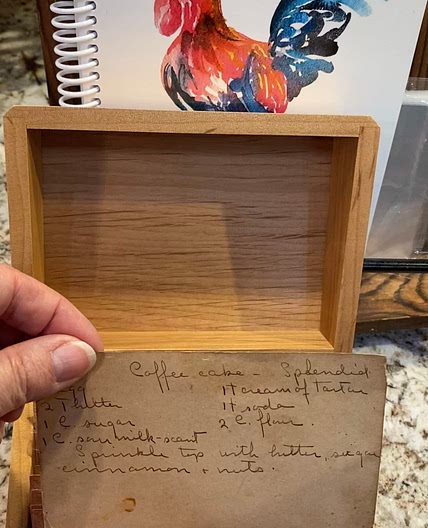 Coffee cake - Splendid
gg 1 t cream of tartar
2 T butter 1 t soda
1 C. sugar 2 C. flour.
1 C. sour milk-scant
Sprinkle top with butter, sugar
cinnamon + nuts.